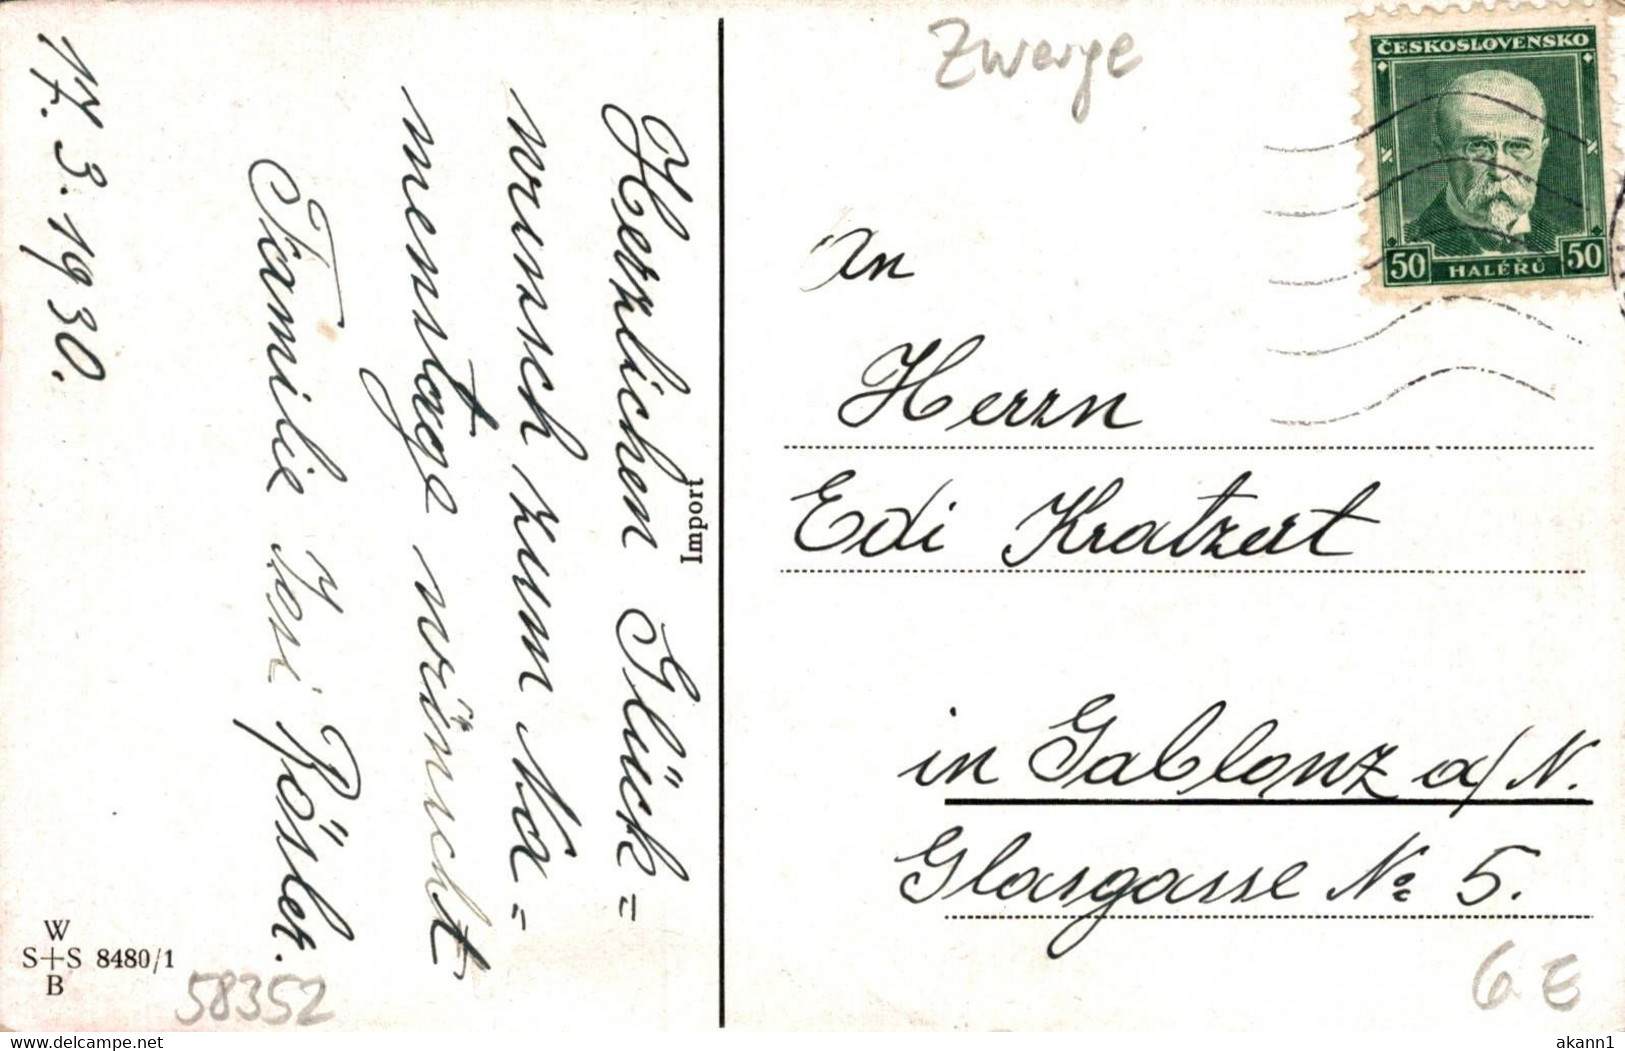 Zwerge
ČESKOSLOVENSKO
50 HALÉŘŮ 50
Herzlichen Glück=
wunsch zum Na=
menstage wünscht
Familie Rösler.
17. 3. 1930.
Import
An
Herrn
Edi Kratzert
in Gablonz a/N.
Glasgasse No 5.
W
S+S 8480/1
B
58352
6 E
delcampe.net
akann1